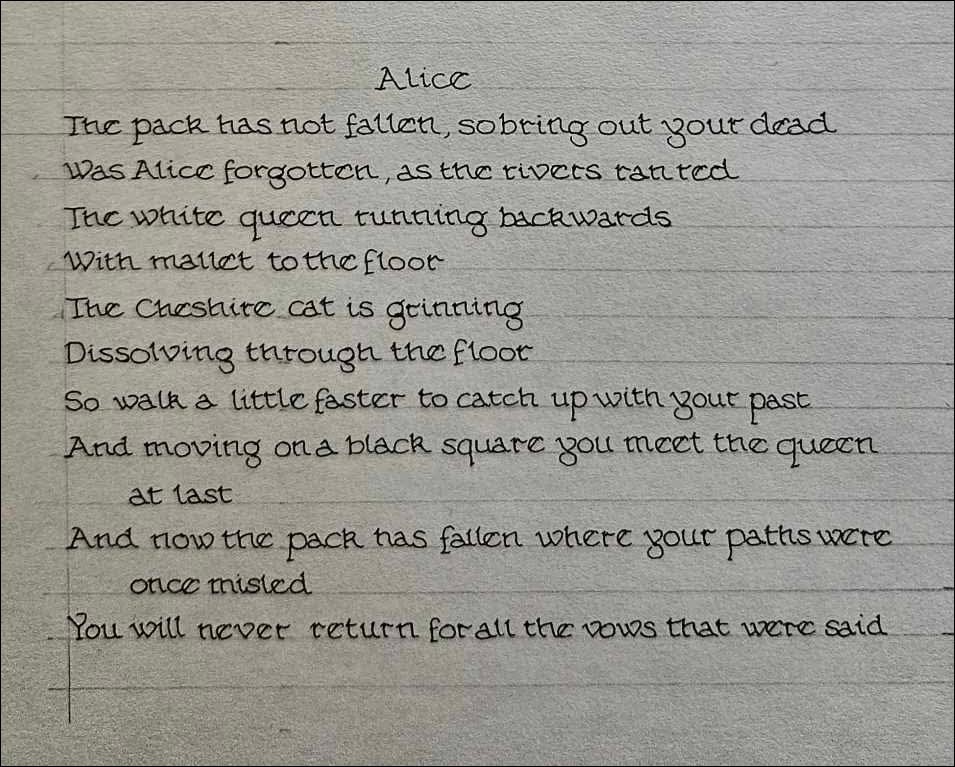 Alice
The pack has not fallen, so bring out your dead
Was Alice forgotten, as the rivers ran red
The white queen running backwards
With mallet to the floor
The Cheshire cat is grinning
Dissolving through the floor
So walk a little faster to catch up with your past
And moving on a black square you meet the queen
at last
And now the pack has fallen where your paths were
once misled
You will never return for all the vows that were said